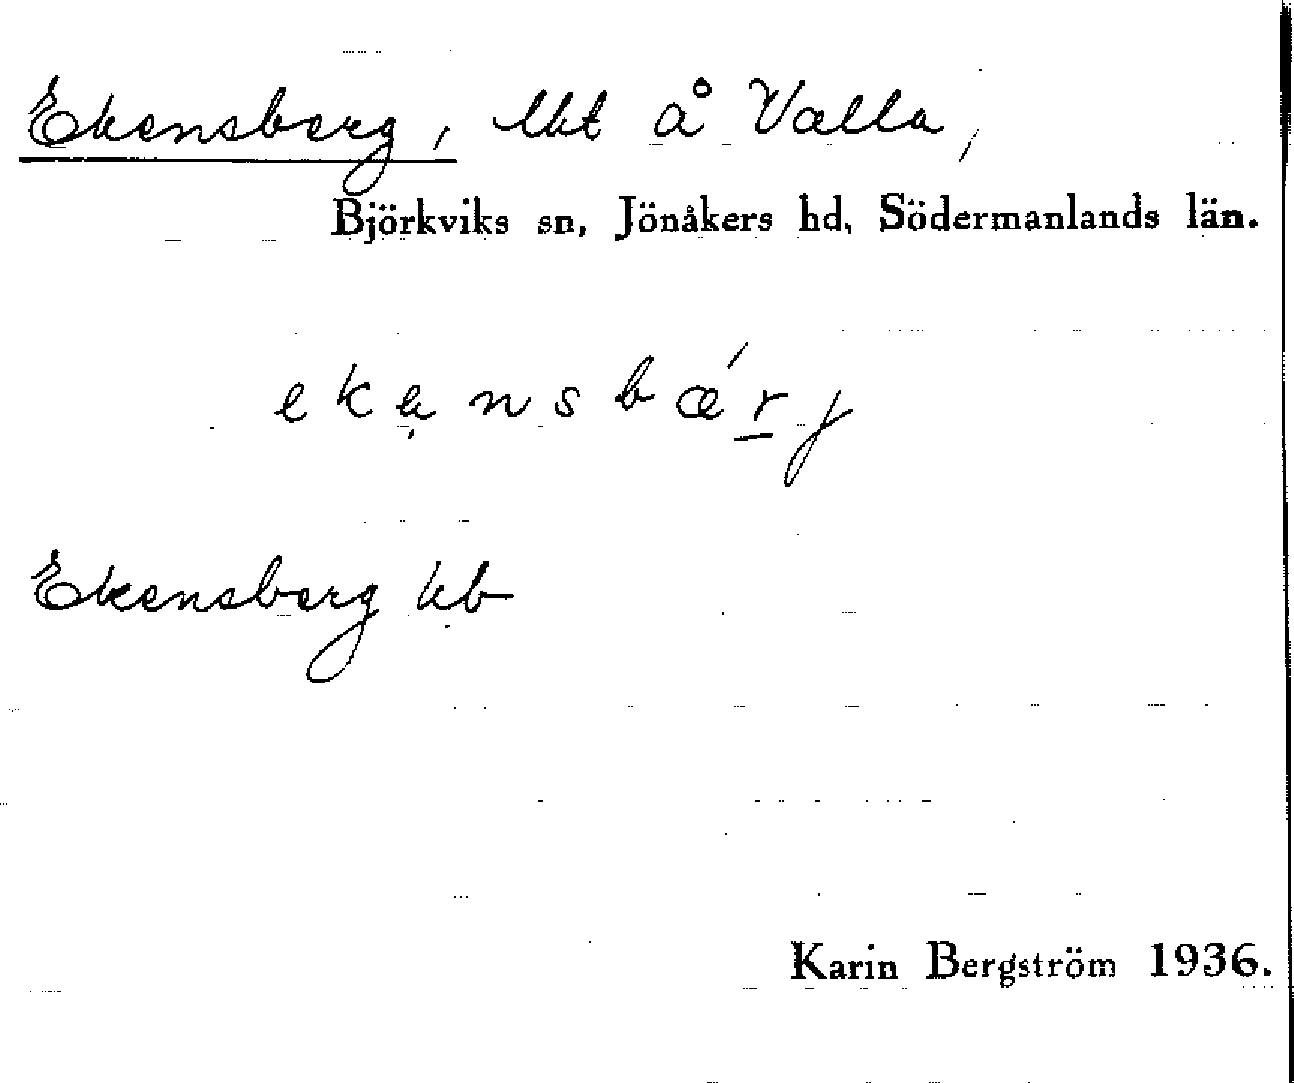 Ekensberg, lht å Valla,
Björkviks sn, Jönåkers hd, Södermanlands län.
ekẹnsbǽr̲j
Ekensberg kb
Karin Bergström 1936.